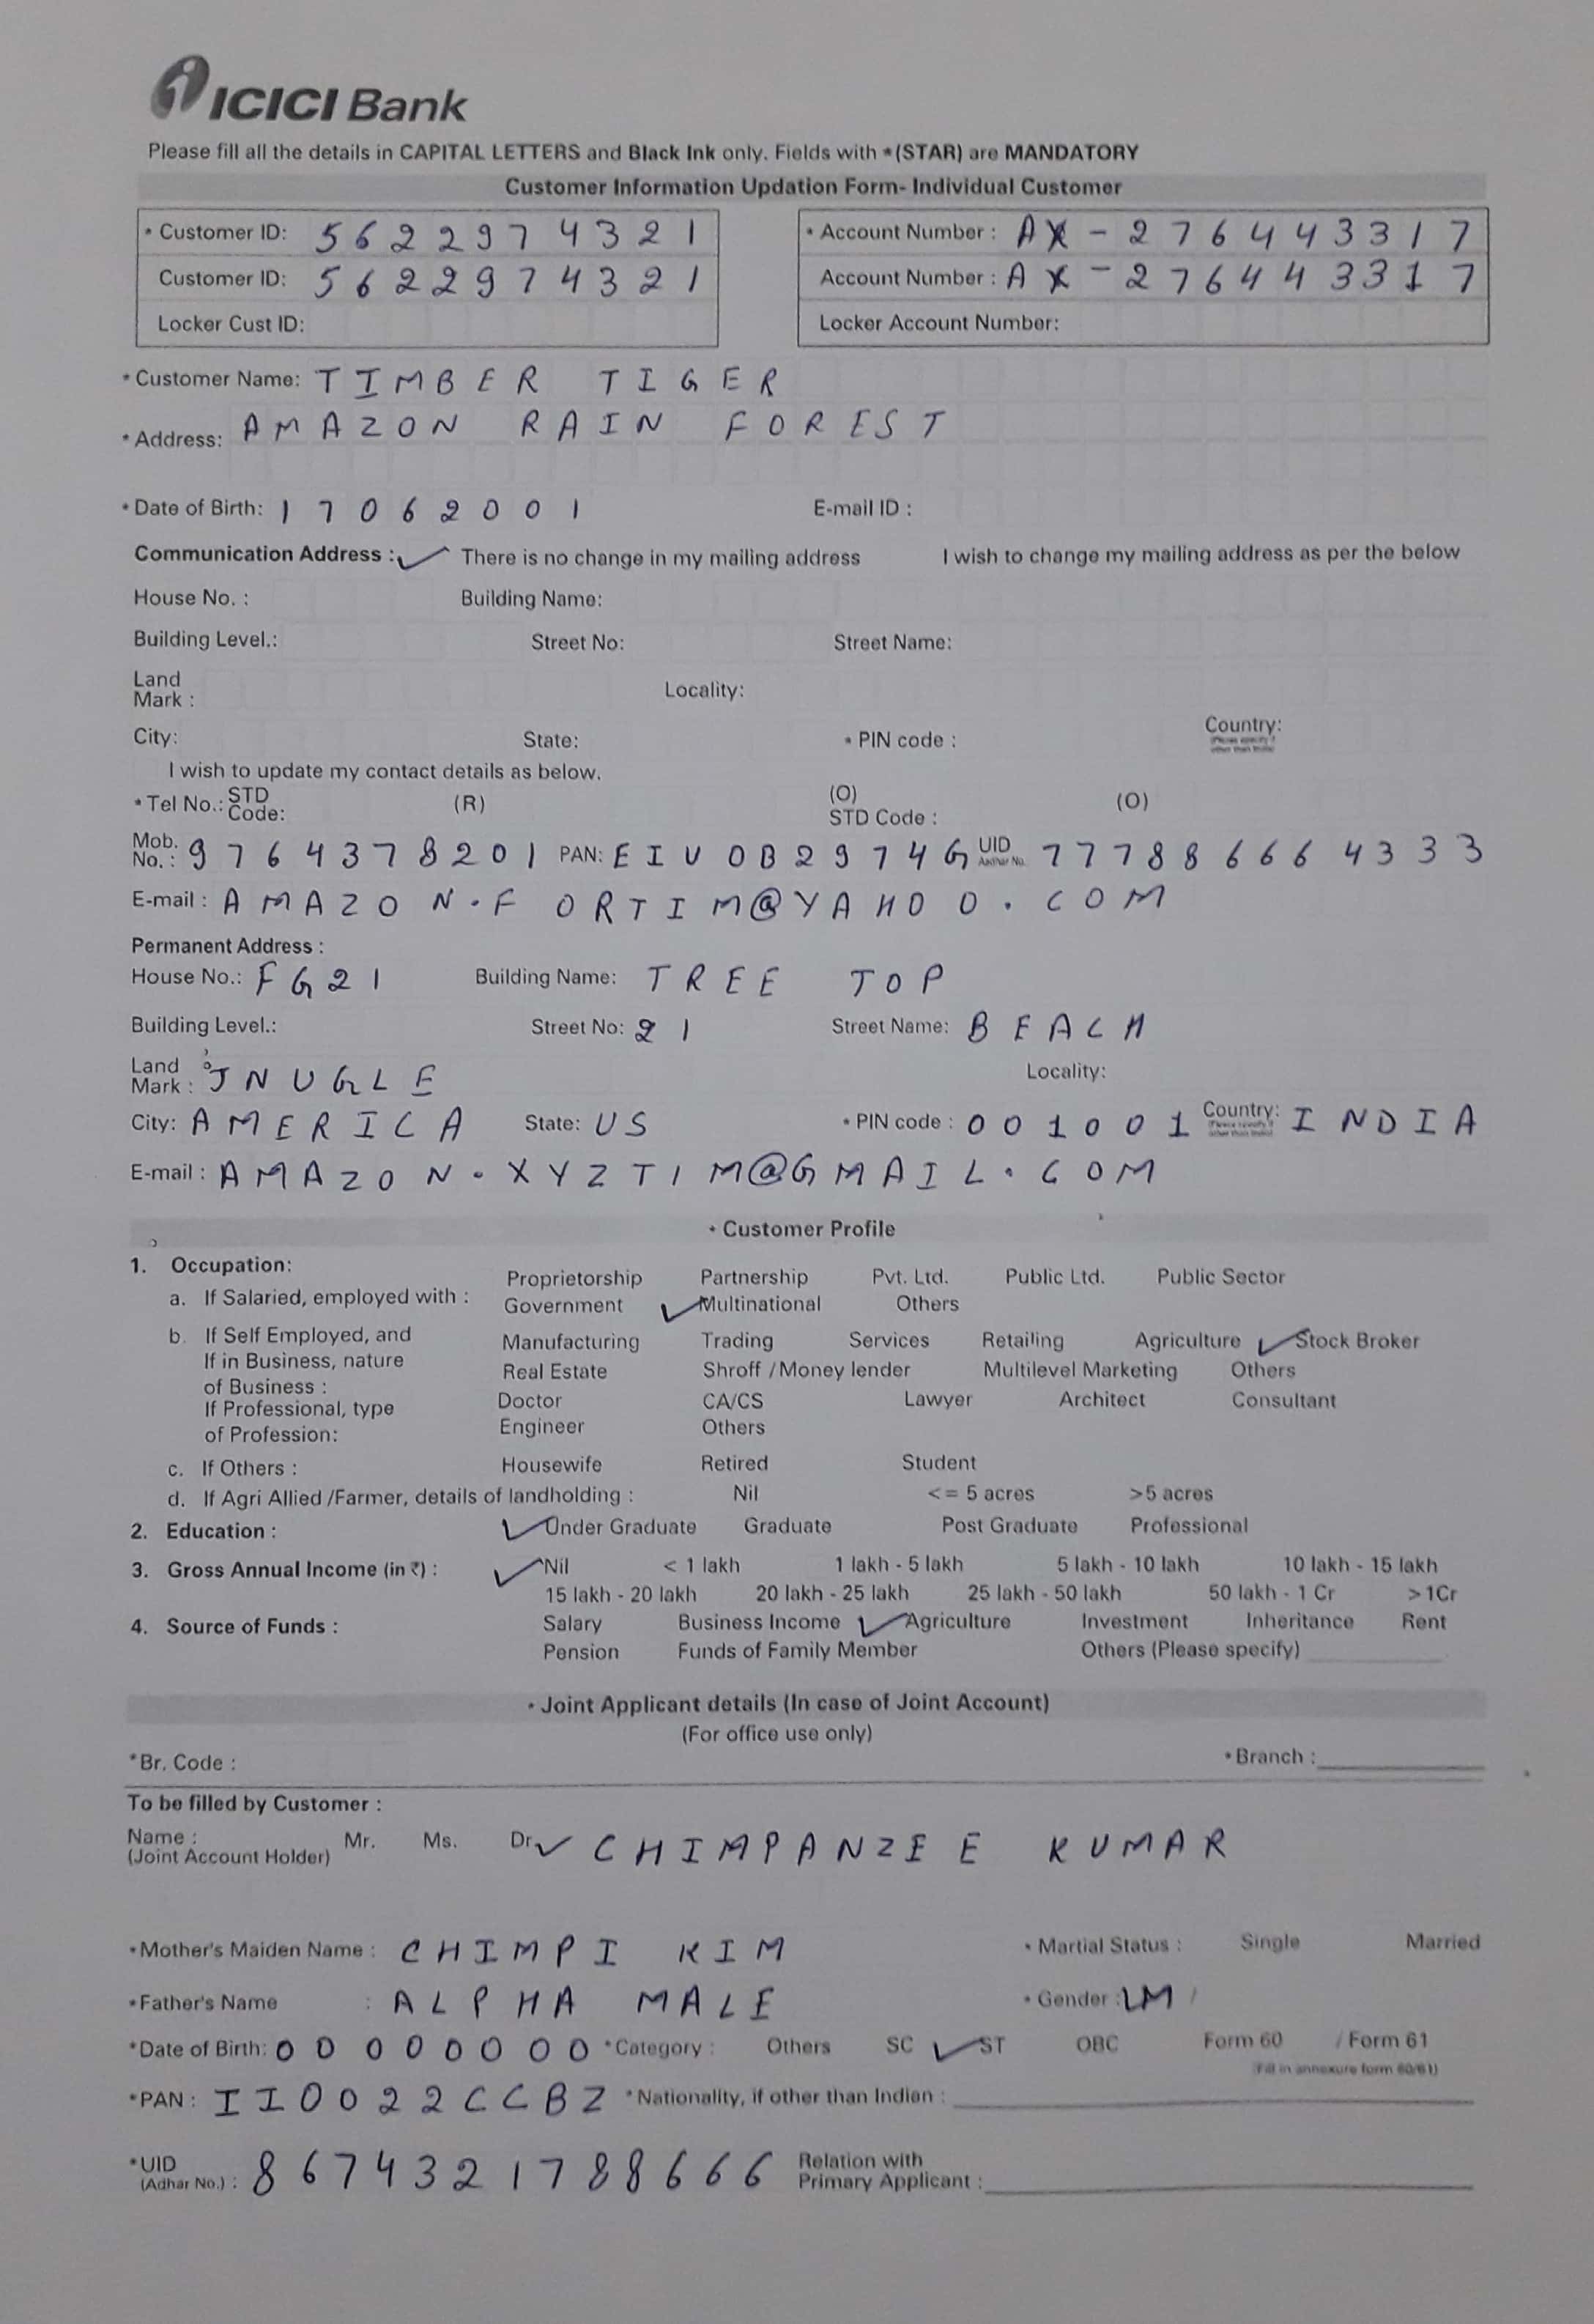 ICICI Bank
Please fill all the details in CAPITAL LETTERS and Black Ink only. Fields with *(STAR) are MANDATORY
Customer Information Updation Form- Individual Customer
* Customer ID: 5622974321 * Account Number : AX-276443317
Customer ID: 5622974321 Account Number : AX-276443317
Locker Cust ID: Locker Account Number:
* Customer Name: TIMBER TIGER
* Address: AMAZON RAIN FOREST
* Date of Birth: 17062001 E-mail ID :
Communication Address : ✓ There is no change in my mailing address I wish to change my mailing address as per the below
House No. : Building Name:
Building Level.: Street No: Street Name:
Land Mark : Locality:
City: State: * PIN code : Country: (Please specify if other than India)
I wish to update my contact details as below.
* Tel No.: STD Code: (R) (O) STD Code : (O)
Mob. No. : 9764378201 PAN: EIU0B2974G UID Aadhar No. 777886664333
E-mail : AMAZON.FORTIM@YAHOO.COM
Permanent Address :
House No.: FG21 Building Name: TREE TOP
Building Level.: Street No: 21 Street Name: BEACH
Land Mark : JNUGLE Locality:
City: AMERICA State: US * PIN code : 001001 Country: (Please specify if other than India) INDIA
E-mail : AMAZON.XYZTIM@GMAIL.COM
* Customer Profile
1. Occupation:
Proprietorship Partnership Pvt. Ltd. Public Ltd. Public Sector
a. If Salaried, employed with : Government ✓ Multinational Others
b. If Self Employed, and Manufacturing Trading Services Retailing Agriculture ✓ Stock Broker
If in Business, nature Real Estate Shroff /Money lender Multilevel Marketing Others
of Business :
If Professional, type Doctor CA/CS Lawyer Architect Consultant
of Profession: Engineer Others
c. If Others : Housewife Retired Student
d. If Agri Allied /Farmer, details of landholding : Nil <= 5 acres >5 acres
2. Education : ✓ Under Graduate Graduate Post Graduate Professional
3. Gross Annual Income (in ₹) : ✓ Nil < 1 lakh 1 lakh - 5 lakh 5 lakh - 10 lakh 10 lakh - 15 lakh
15 lakh - 20 lakh 20 lakh - 25 lakh 25 lakh - 50 lakh 50 lakh - 1 Cr >1Cr
4. Source of Funds : Salary Business Income ✓ Agriculture Investment Inheritance Rent
Pension Funds of Family Member Others (Please specify)
* Joint Applicant details (In case of Joint Account)
(For office use only)
*Br. Code : * Branch :
To be filled by Customer :
Name : (Joint Account Holder) Mr. Ms. Dr ✓ CHIMPANZEE KUMAR
* Mother's Maiden Name : CHIMPI KIM * Martial Status : Single Married
* Father's Name : ALPHA MALE * Gender : M /
*Date of Birth: 00000000 *Category : Others SC ✓ ST OBC Form 60 / Form 61
(Fill in annexure form 60/61)
*PAN : II0022CCBZ *Nationality, if other than Indian :
*UID (Adhar No.) : 8674321788666 Relation with Primary Applicant :